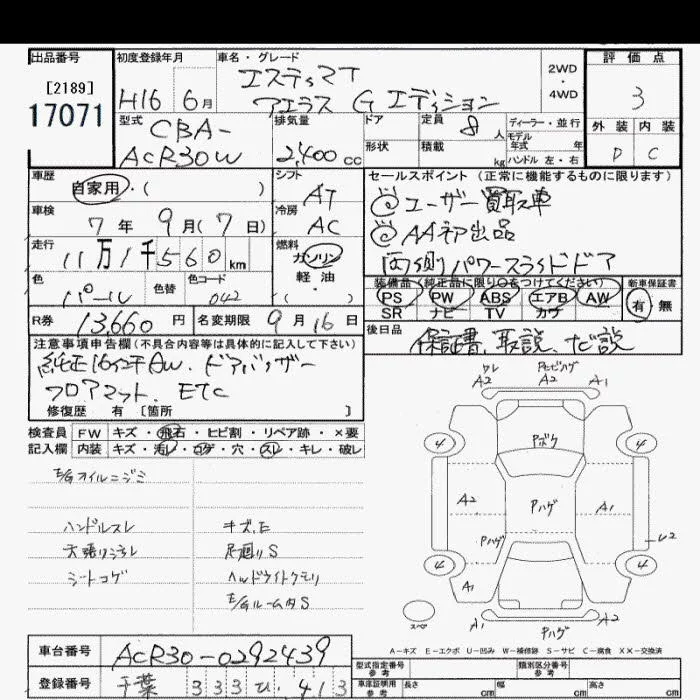 出品番号
[2189]
17071
初度登録年月
H16 6月
車名・グレード
エスティマT
アエラス G エディション
2WD
・
4WD
評価点
3
外装 内装
D C
型式
CBA-
ACR30W
排気量
2,400 cc
ドア
形状
定員
8人
積載
kg
ディーラー・並行
モデル年式 年
ハンドル 左・右
車歴
自家用・( )
シフト
AT
車検
7年 9月(7日)
冷房
AC
走行
11万1千560km
燃料
ガソリン
軽油
・( )
色
パール
色替
色コード
042
R券
13,660円
名変期限 9月16日
セールスポイント(正常に機能するものに限ります)
ユーザー買取車
AA初出品
両側パワースライドドア
装備品(純正品に限り○をつけてください)
PS PW ABS エアB AW
SR ナビ TV カワ
新車保証書
有・無
後日品
保証書、取説、ナビ説
注意事項申告欄(不具合内容等は具体的に記入して下さい)
純正16インチAW、ドアバイザー
フロアマット、ETC
修復歴 有 [箇所 ]
検査員 FW キズ・飛石・ヒビ割・リペア跡・×要
記入欄 内装 キズ・汚レ・コゲ・穴・スレ・キレ・破レ
E/Gオイルニジミ
ハンドルスレ
天張リシミ
シートコゲ
キズ、E
足廻リS
ヘッドライトクモリ
E/Gルーム内S
ワレ
A2
PヒビハゲA2
A1
Pボケ
4
4
A2
Pハゲ
A1
Pハゲ
U2
4
4
A1
スペア
A1
Pハゲ
A2
A-キズ E-エクボ U-凹み W-補修跡 S-サビ C-腐食 XX-交換済
車台番号
ACR30-0292439
登録番号
千葉 333 ひ 413
型式指定番号
参考
類別区分番号
参考
車庫証明用
参考
長さ cm
幅 cm
高さ cm